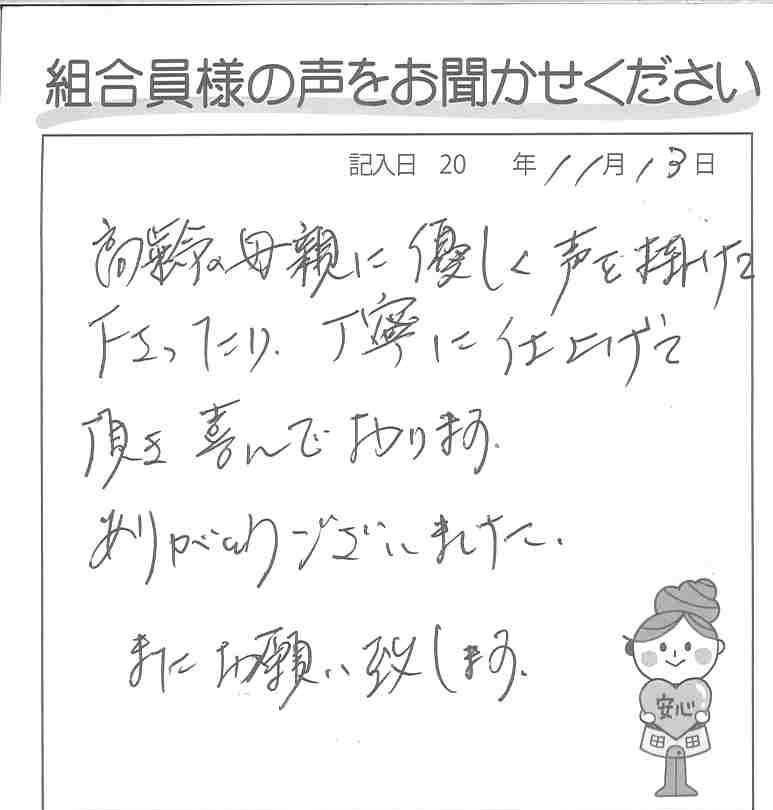 組合員様の声をお聞かせください
記入日 20 年 11月 13日
高齢の母親に優しく声を掛けて
下さったり、丁寧に仕上げて
頂き喜んでおります。
ありがとうございました。
またお願い致します。
安心